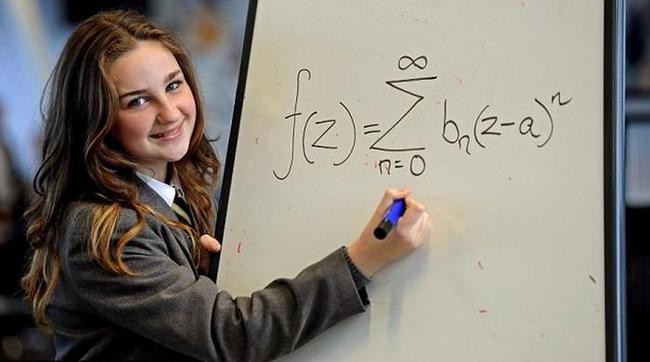 f(z) = ∞∑n=0 bn(z-a)^n